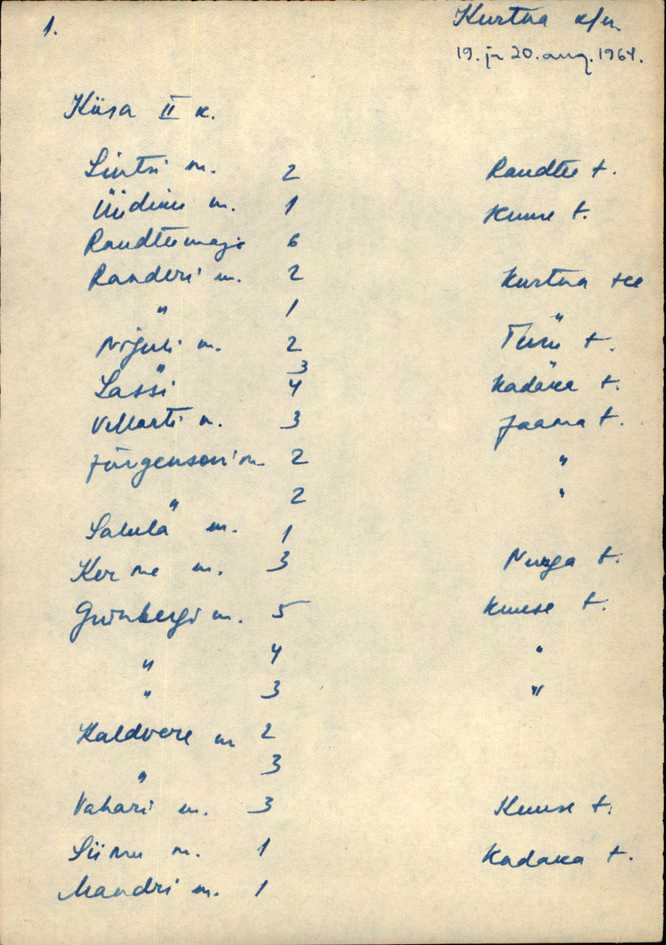 1.
Kurtna k/n.
19. ja 20. aug. 1964.
Kiisa II k.
Lintsi m. 2 Raudtee t.
Üidiku m. 1 Kuuse t.
Raudteemaja 6
Randeri m. 2 Kurtna tee
" 1 "
Niguli m. 2 Tiisu t.
3
Lassi 4 Kadaka t.
Villarti m. 3 Jaama t.
Jürgensoni m. 2 "
" 2 "
Salula m. 1
Kerme m. 3 Nurga t.
Grünbergi m. 5 Kuuse t.
" 4 "
" 3 "
Kaldvere m 2
" 3
Vahari m. 3 Kuuse t.
Siimu m. 1 Kadaka t.
Mandri m. 1